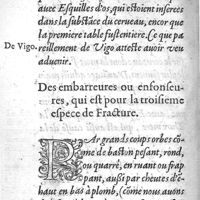 auec Esquilles d'os, qui estoient inserees
dans la substãce du cerueau, encor que
la premiere table fust entiere. Ce que pa
De Vigo. reillement de Vigo atteste auoir veu
aduenir.
Des embarreures ou enfonseu-
res, qui est pour la troisieme
espece de Fracture.
PAr grands coups orbes cõ
me de baston pesant, rond,
ou quarré, en ruant ou frap
pant, aussi par cheutes d'é-
haut en bas à plomb, (cõme nous auons